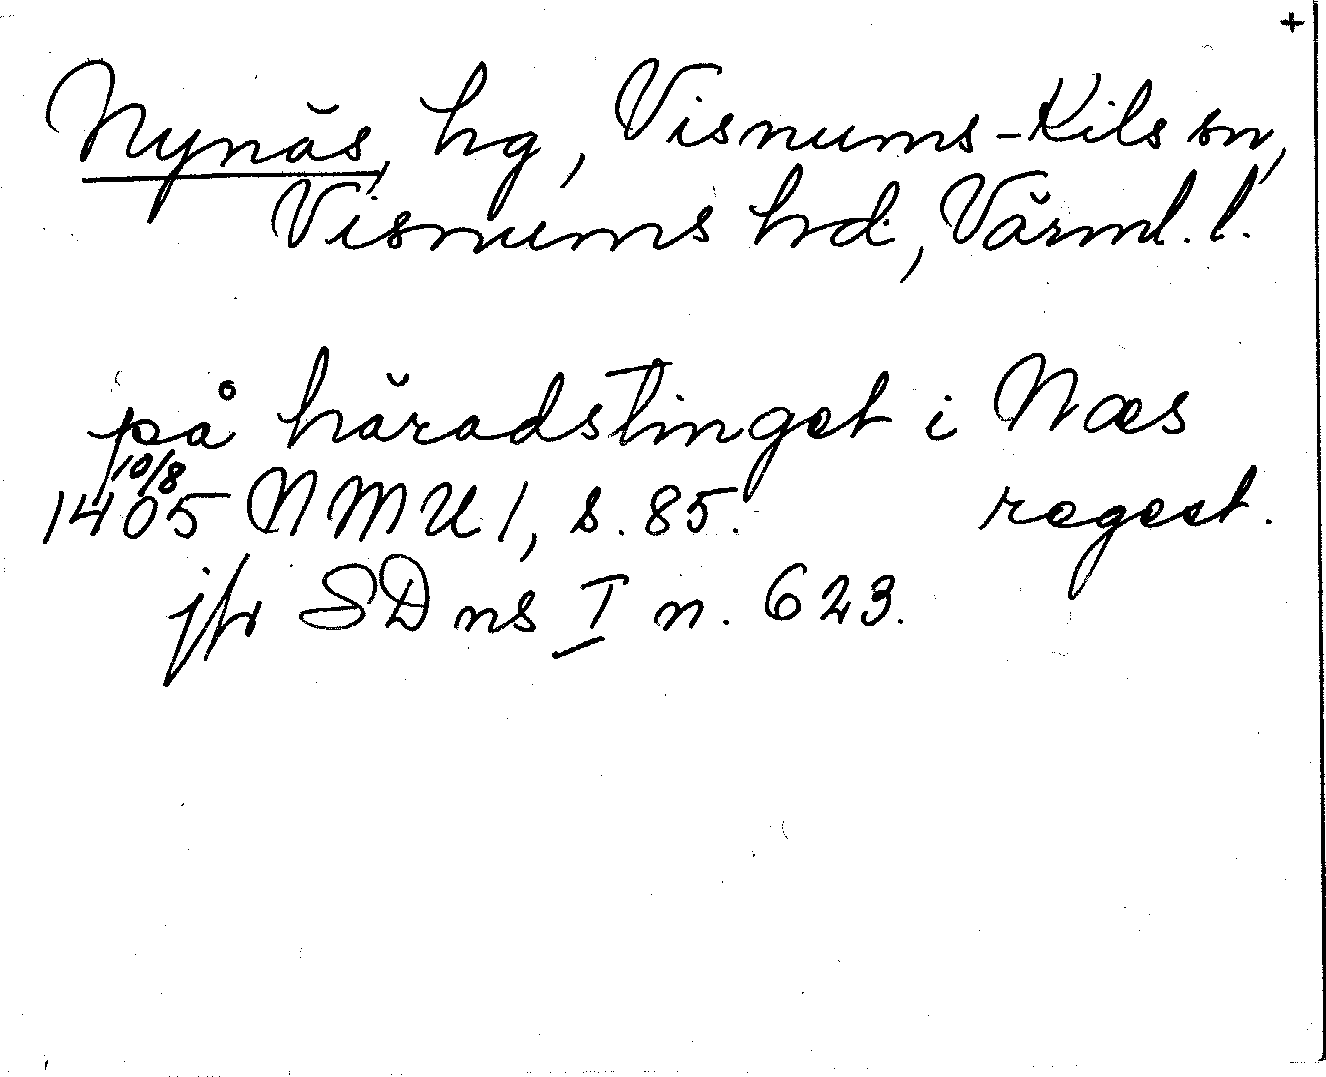 +
Nynäs, hg, Visnums-Kils sn,
Visnums hd, Värml. l.
på häradstinget i Næs
10/8
1405 NMU 1, s. 85. regest.
jfr SD ns I n. 623.